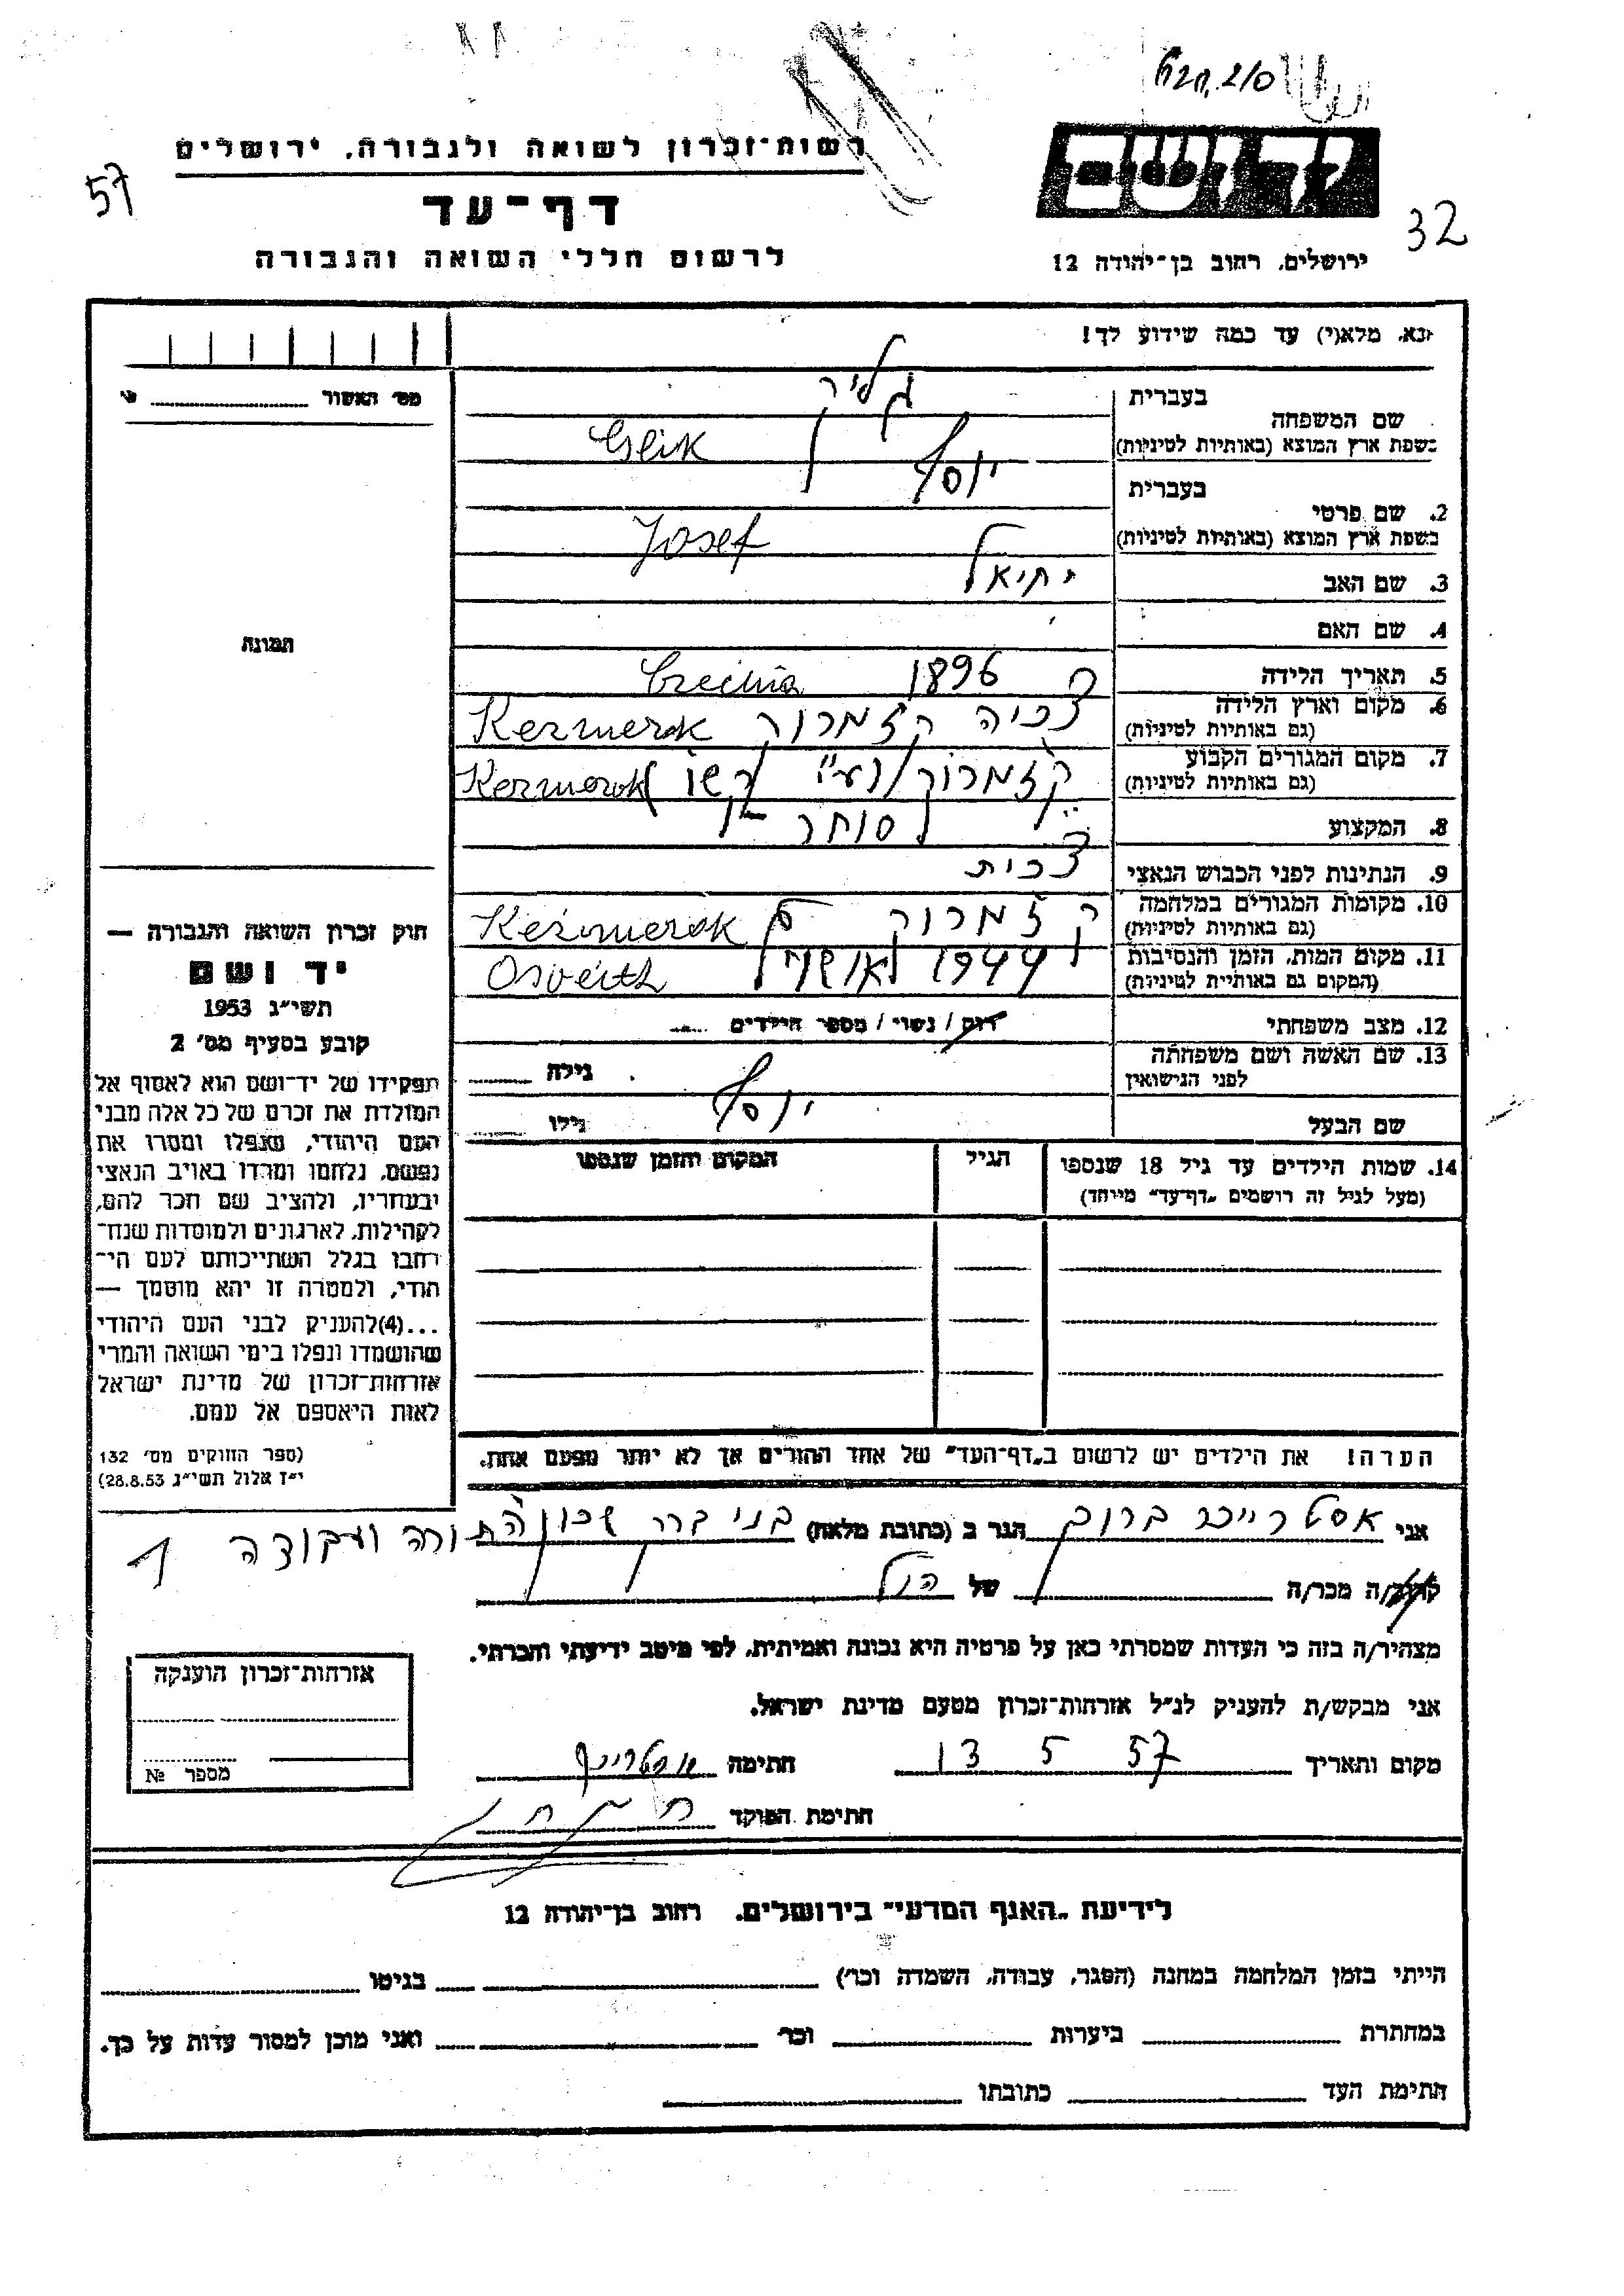 57
32
רשות־זכרון לשואה ולגבורה, ירושלים
דף־עד
לרשום חללי השואה והגבורה
יד ושם
ירושלים, רחוב בן־יהודה 12
נא, מלא(י) עד כמה שידוע לך!
מס׳ האשור
בעברית
שם המשפחה
בשפת ארץ המוצא (באותיות לטיניות)
גליק
Glik
בעברית
2. שם פרטי
בשפת ארץ המוצא (באותיות לטיניות)
יוסף
Josef
3. שם האב יחיאל
4. שם האם
תמונה
5. תאריך הלידה 1896
6. מקום וארץ הלידה
(גם באותיות לטיניות)
צכיה קזמרוק Kezmerok
7. מקום המגורים הקבוע
(גם באותיות לטיניות)
קזמרוק Kezmerok
8. המקצוע סוחר
9. הנתינות לפני הכבוש הנאצי צכית
10. מקומות המגורים במלחמה
(גם באותיות לטיניות)
קזמרוק Kežmerok
11. מקום המות, הזמן והנסיבות
(המקום גם באותיות לטיניות)
1944 Osveith
12. מצב משפחתי רוק / נשוי / מספר הילדים
13. שם האשה ושם משפחתה
לפני הנישואין
גילה
שם הבעל יוסף גילו
14. שמות הילדים עד גיל 18 שנספו
(מעל לגיל זה רושמים „דף־עד״ מיוחד)
הגיל
המקום והזמן שנספו
חוק זכרון השואה והגבורה —
יד ושם
תשי״ג 1953
קובע בסעיף מס׳ 2
תפקידו של יד־ושם הוא לאסוף אל
המולדת את זכרם של כל אלה מבני
העם היהודי, שנפלו ומסרו את
נפשם, נלחמו ומרדו באויב הנאצי
ובעוזריו, ולהציב שם וזכר להם,
לקהילות, לארגונים ולמוסדות שנח־
רבו בגלל השתייכותם לעם הי־
הודי, ולמטרה זו יהא מוסמך —
...(4)להעניק לבני העם היהודי
שהושמדו ונפלו בימי השואה והמרי
אזרחות־זכרון של מדינת ישראל
לאות היאספם אל עמם.
(ספר החוקים מס׳ 132
י״ז אלול תשי״ג 28.8.53)
הערה! את הילדים יש לרשום ב„דף־העד״ של אחד ההורים אך לא יותר מפעם אחת.
אני אסטרייכר ברוך הגר ב (כתובת מלאה) בני ברק שכונה תורה ועבודה 1
קרוב/ה מכר/ה של הנ״ל
מצהיר/ה בזה כי העדות שמסרתי כאן על פרטיה היא נכונה ואמיתית, לפי מיטב ידיעתי והכרתי.
אני מבקש/ת להעניק לנ״ל אזרחות־זכרון מטעם מדינת ישראל.
מקום ותאריך 13 5 57 חתימה
חתימת הפוקד
אזרחות־זכרון הוענקה
מספר №
לידיעת „האגף המדעי״ בירושלים, רחוב בן־יהודה 12
הייתי בזמן המלחמה במחנה (הסגר, עבודה, השמדה וכר) בגיטו
במחתרת ביערות וכר ואני מוכן למסור עדות על כך.
חתימת העד כתובתו